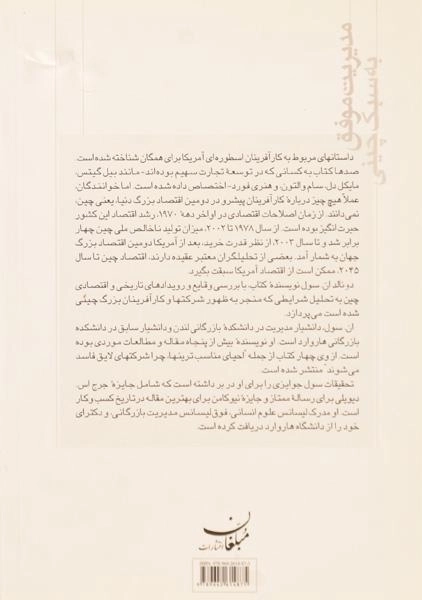 مدیریت موفق
به سبک چینی
داستانهای مربوط به کارآفرینان اسطوره‌ای آمریکا برای همگان شناخته شده است.
صدها کتاب به کسانی که در توسعهٔ تجارت سهیم بوده‌اند- مانند بیل گیتس،
مایکل دل، سام والتون، و هنری فورد- اختصاص داده شده است. اما خوانندگان،
عملاً هیچ چیز دربارهٔ کارآفرینان پیشرو در دومین اقتصاد بزرگ دنیا، یعنی چین،
نمی‌دانند. از زمان اصلاحات اقتصادی در اواخر دههٔ ۱۹۷۰، رشد اقتصاد این کشور
حیرت انگیز بوده است. از سال ۱۹۷۸ تا ۲۰۰۲، میزان تولید ناخالص ملی چین چهار
برابر شد و تا سال ۲۰۰۳، از نظر قدرت خرید، بعد از آمریکا دومین اقتصاد بزرگ
جهان به شمار آمد. بعضی از تحلیلگران معتبر عقیده دارند، اقتصاد چین تا سال
۲۰۴۵، ممکن است از اقتصاد آمریکا سبقت بگیرد.
دونالد ان. سول نویسندهٔ کتاب، با بررسی وقایع و رویدادهای تاریخی و اقتصادی
چین به تحلیل شرایطی که منجر به ظهور شرکتها و کارآفرینان بزرگ چینی
شده است می‌پردازد.
ان. سول، دانشیار مدیریت در دانشکدهٔ بازرگانی لندن و دانشیار سابق در دانشکده
بازرگانی هاروارد است. او نویسندهٔ بیش از پنجاه مقاله و مطالعات موردی بوده
است. از وی چهار کتاب از جمله "احیای مناسب ترینها، چرا شرکتهای لایق فاسد
می‌شوند" منتشر شده است.
تحقیقات سول جوایزی را برای او در بر داشته است که شامل جایزهٔ جرج اس.
دیویلی برای رسالهٔ ممتاز و جایزهٔ نیوکامن برای بهترین مقاله در تاریخ کسب و کار
است. او مدرک لیسانس علوم انسانی، فوق‌لیسانس مدیریت بازرگانی، و دکترای
خود را از دانشگاه هاروارد دریافت کرده است.
مبلغان
انتشارات